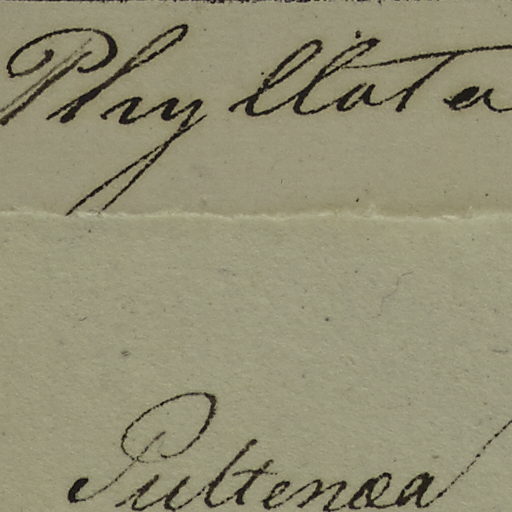 Phyllota
Pultenœa